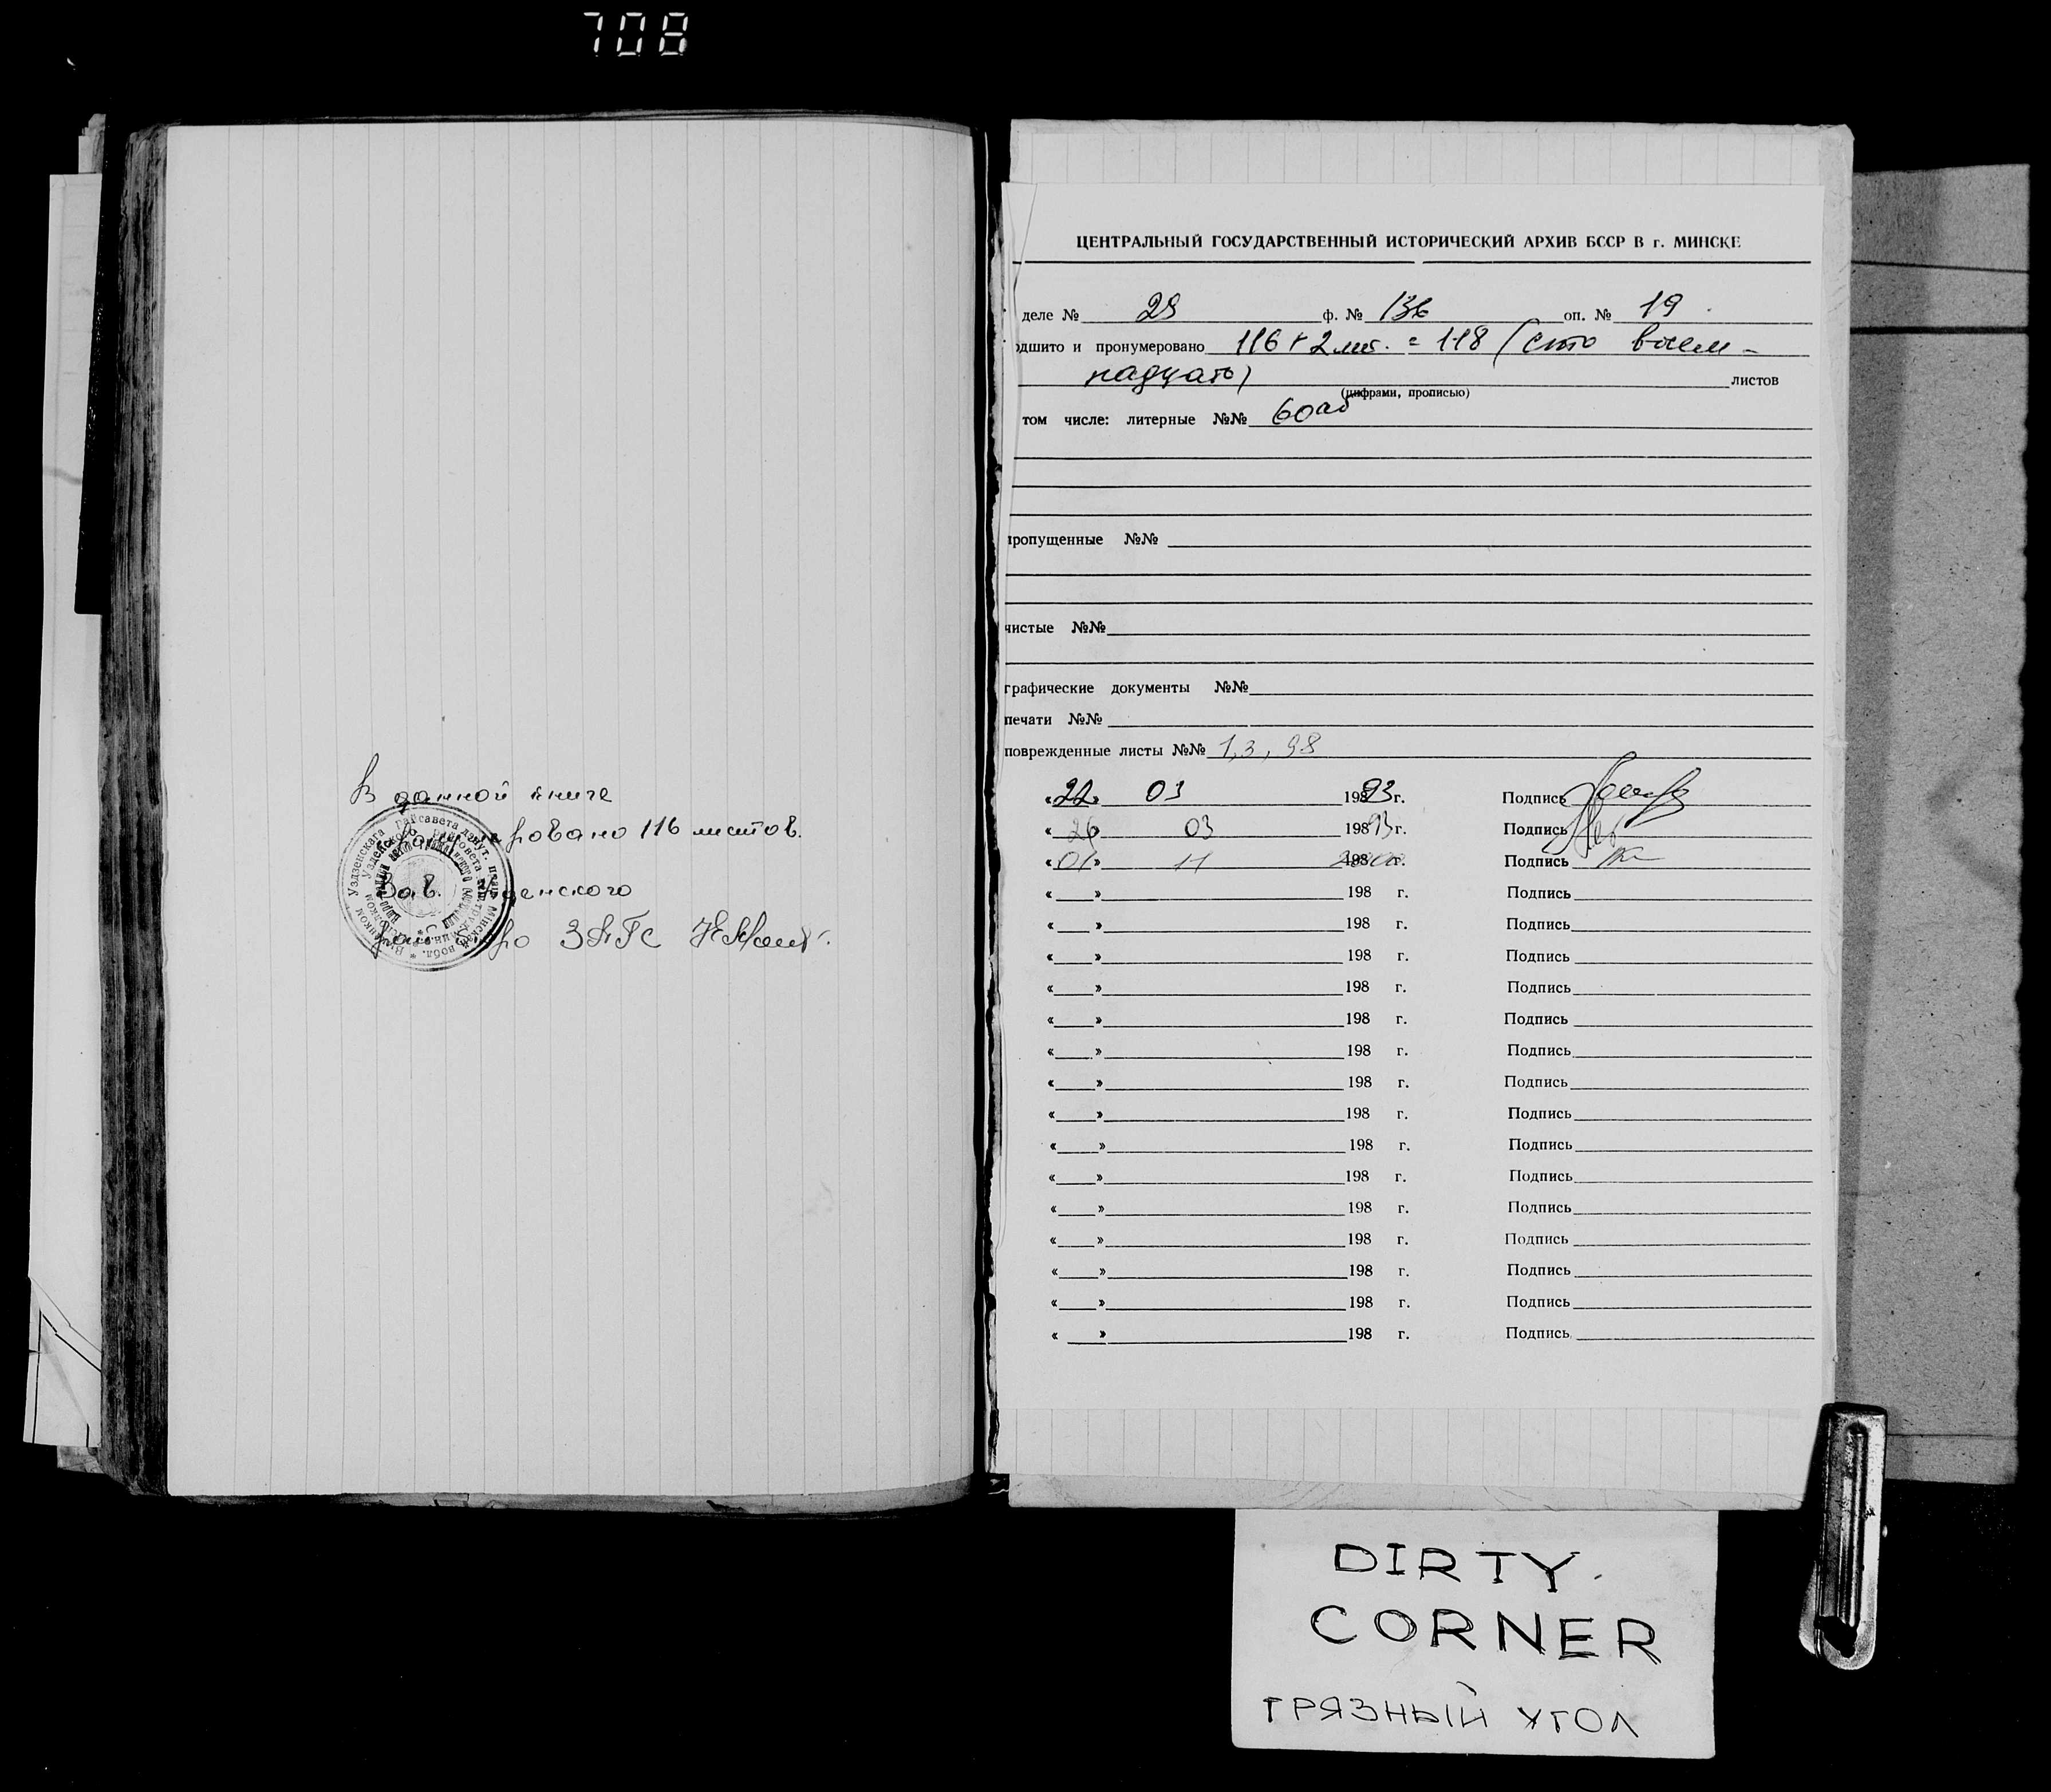 708
В данной книге
ровано 116 листов.
Зав. денского
ЗАГС
ЦЕНТРАЛЬНЫЙ ГОСУДАРСТВЕННЫЙ ИСТОРИЧЕСКИЙ АРХИВ БССР В г. МИНСКЕ
деле № 29 ф. № 136 оп. № 19
одшито и пронумеровано 116 + 2 лит. = 118 (сто восем-
надцать) листов
(цифрами, прописью)
том числе: литерные №№ 60аб
пропущенные №№
чистые №№
графические документы №№
печати №№
поврежденные листы №№ 1, 3, 98
«22» 03 1993 г. Подпись
«26» 03 19893 г. Подпись
«01» 11 г. Подпись
« » 198 г. Подпись
« » 198 г. Подпись
« » 198 г. Подпись
« » 198 г. Подпись
« » 198 г. Подпись
« » 198 г. Подпись
« » 198 г. Подпись
« » 198 г. Подпись
« » 198 г. Подпись
« » 198 г. Подпись
« » 198 г. Подпись
« » 198 г. Подпись
« » 198 г. Подпись
« » 198 г. Подпись
« » 198 г. Подпись
DIRTY
CORNER
ГРЯЗНЫЙ УГОЛ